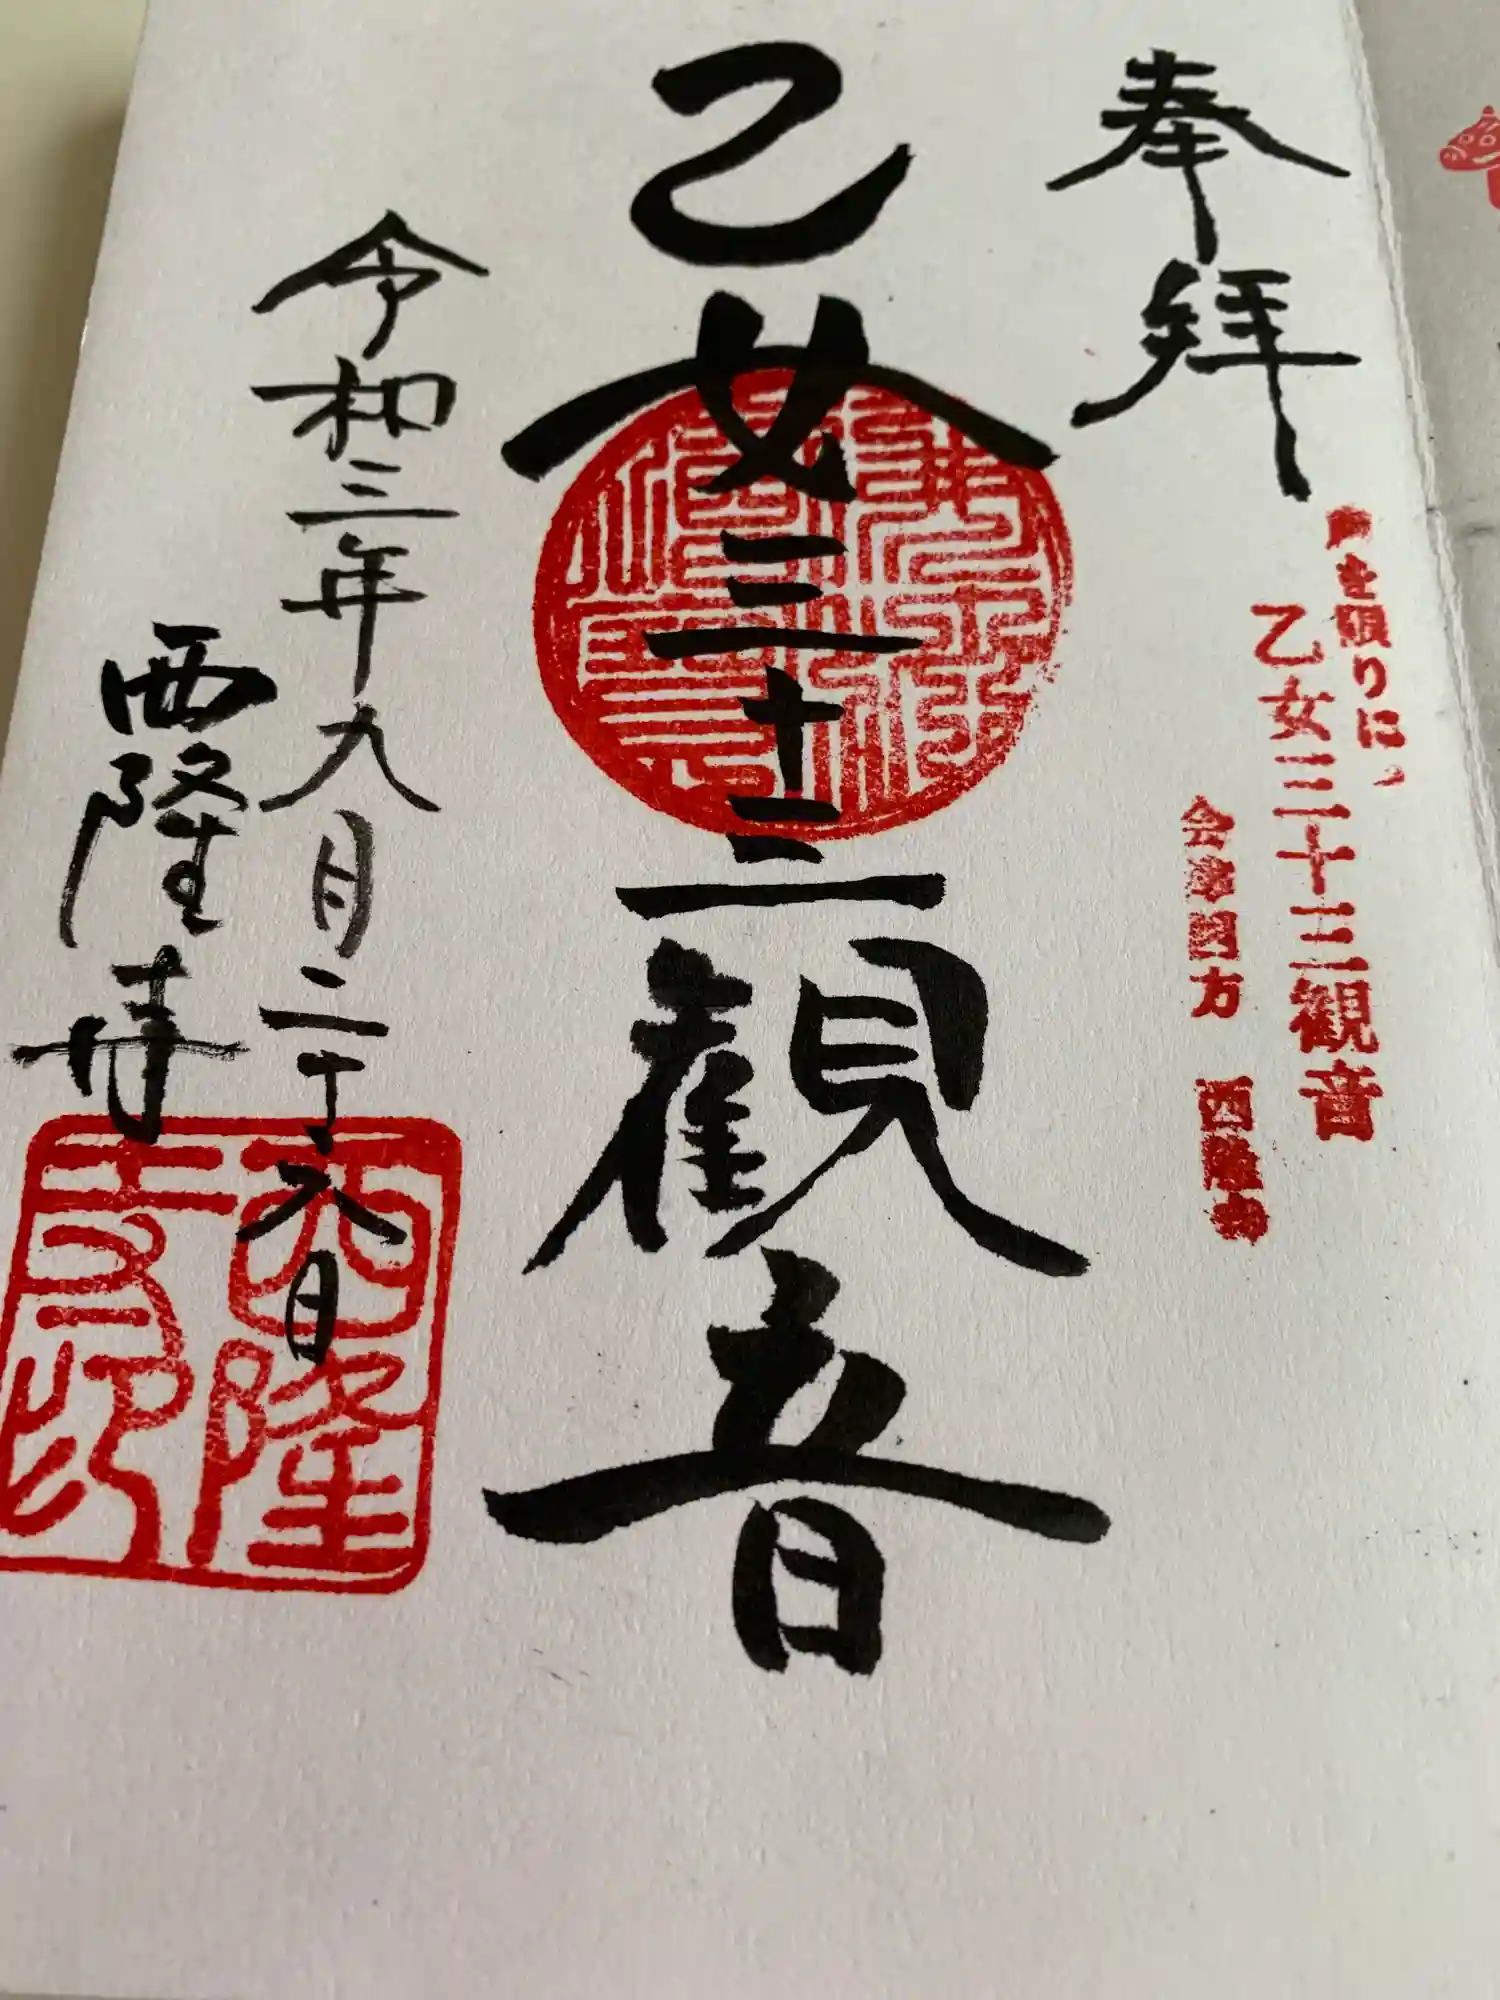 奉拝
を頂りに
乙女三十三観音
会津 方 西隆寺
乙女三十三観音
令和三年九月二十八日
西隆寺
西隆